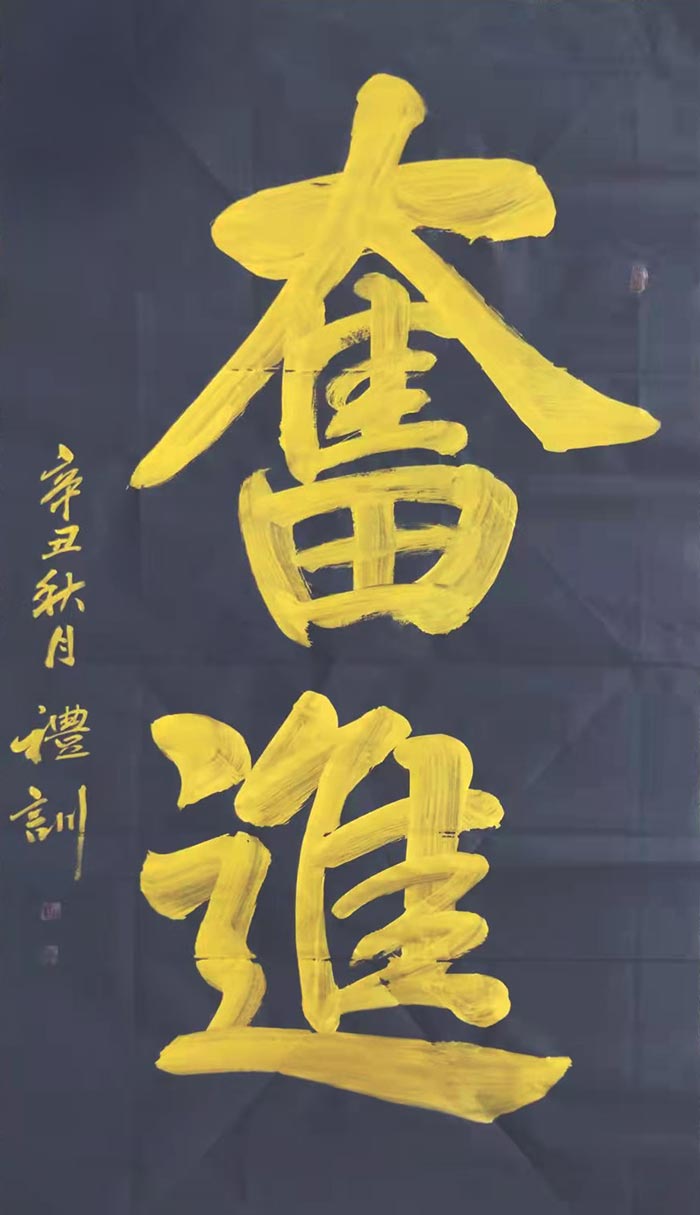 奮進
辛丑秋月 禮訓